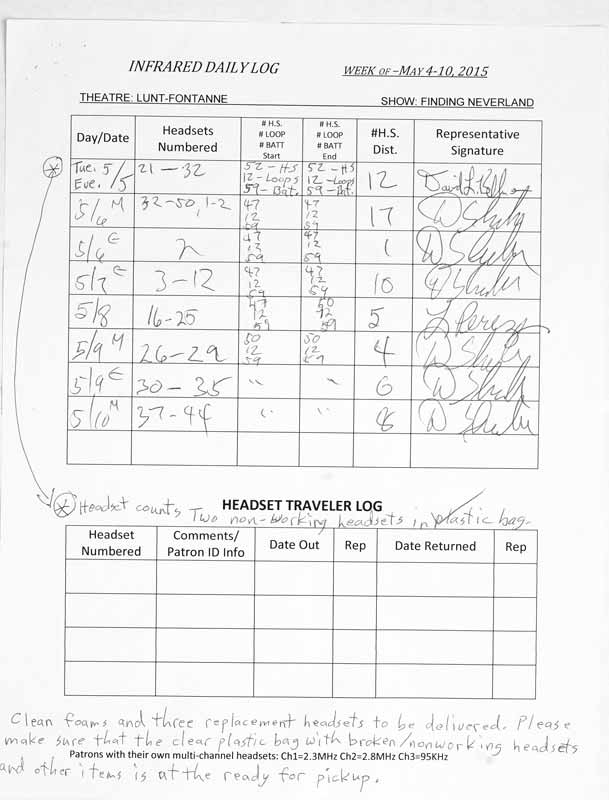 INFRARED DAILY LOG WEEK OF –MAY 4-10, 2015
THEATRE: LUNT-FONTANNE SHOW: FINDING NEVERLAND
Day/Date Headsets Numbered # H.S. # LOOP # BATT Start # H.S. # LOOP # BATT End #H.S. Dist. Representative Signature
Tue. 5/5 Eve. 21-32 52-HS 12-Loops 59-Bat. 52-HS 12-Loops 59-Bat. 12 David L.
5/6 M 32-50, 1-2 47 12 59 47 12 59 17 W
5/6 E 2 47 13 59 47 12 59 1 W
5/7 E 3-12 47 12 59 47 12 59 10 W
5/8 16-25 47 12 59 50 12 59 5 L Perez
5/9 M 26-29 50 12 59 50 12 59 4 W
5/9 E 30-35 " " 6 W
5/10 M 37-44 " " 8 W
* Headset counts Two non-working headsets in plastic bag.
HEADSET TRAVELER LOG
Headset Numbered Comments/ Patron ID Info Date Out Rep Date Returned Rep
Clean foams and three replacement headsets to be delivered. Please
make sure that the clear plastic bag with broken/nonworking headsets
Patrons with their own multi-channel headsets: Ch1=2.3MHz Ch2=2.8MHz Ch3=95KHz
and other items is at the ready for pickup.